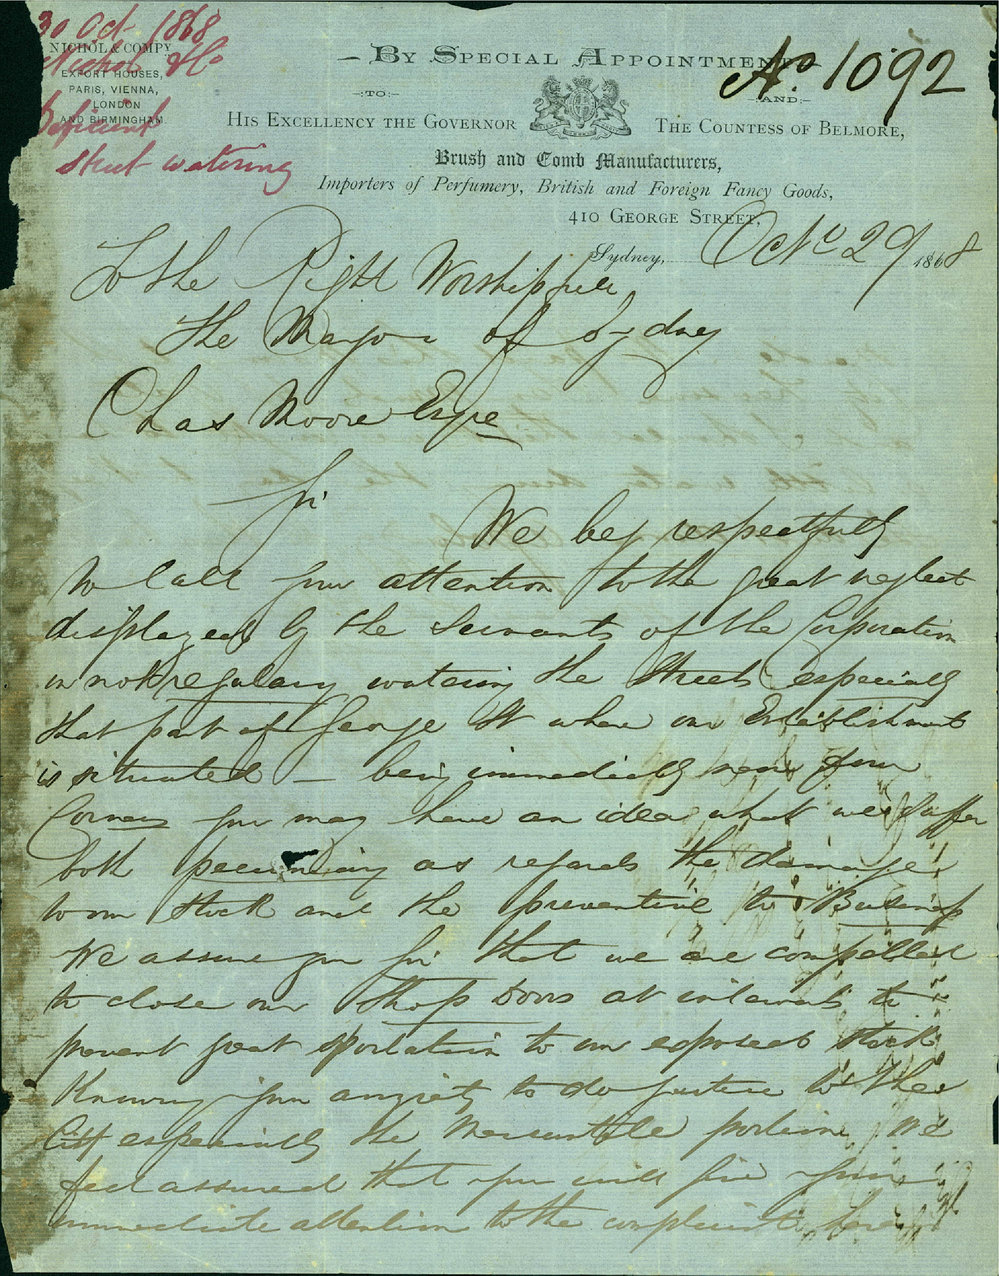 30 Oct 1868
Nichol & Co
Deficient
street watering
NICHOL & COMPY
EXPORT HOUSES,
PARIS, VIENNA,
LONDON
AND BIRMINGHAM.
No. 1092
BY SPECIAL APPOINTMENT
—:TO:—
—AND:—
HIS EXCELLENCY THE GOVERNOR
THE COUNTESS OF BELMORE,
Brush and Comb Manufacturers,
Importers of Perfumery, British and Foreign Fancy Goods,
410 GEORGE STREET,
Sydney, Octr 29 1868
To the Right Worshipfull
The Mayor of Sydney
Chas Moore Esqre
Sir
We beg respectfully
to call your attention to the great neglect
displayed by the Servants of the Corporation
in not regulary watering the Streets especially
that part of George St where our Establishment
is situated — being immediatly near your
Corner you may have an idea what we suffer
both pecuniary as regards the damage
to our Stock and the preventive to Business
We assure you Sir that we are compelled
to close our Shop Doors at intervals to
prevent great spoliation to our exposed Stock
Knowing your anxiety to do justice to the
City especially the Mercantile portion We
feel assured that you will give your
immediate attention to the complaint here